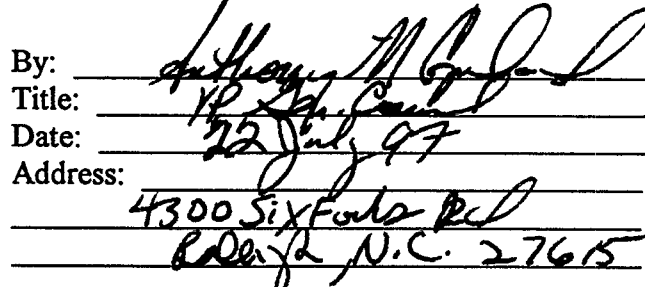 By: Anthony M
Title: VP
Date: 22 July 97
Address:
4300 Six Forks Rd
Raleigh, N.C. 27615